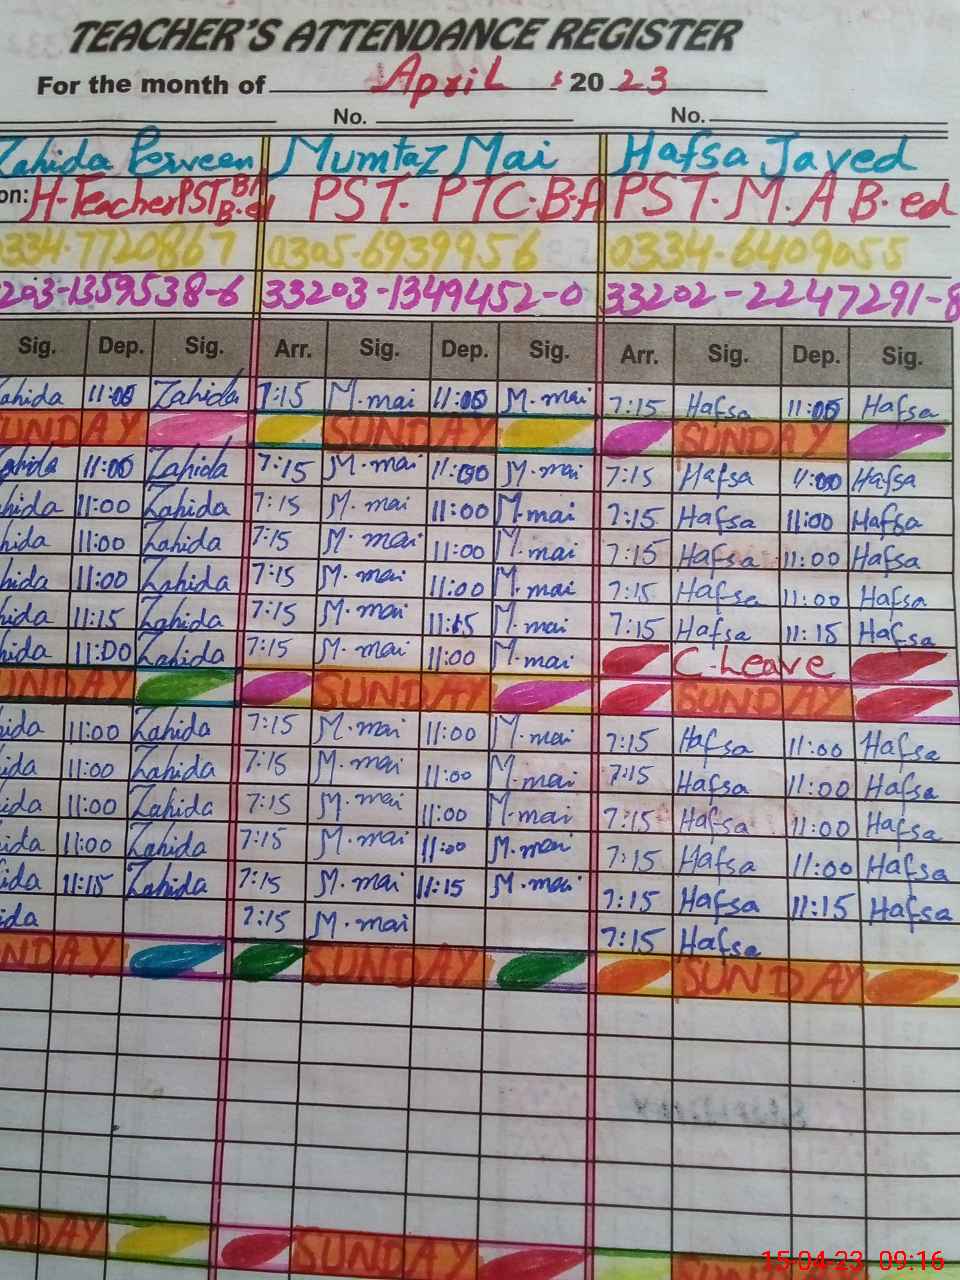 TEACHER'S ATTENDANCE REGISTER
For the month of April 2023
No. No.
Zahida Perveen Mumtaz Mai Hafsa Javed
on: H-Teacher PST B.A B.ed PST. PTC.B.A PST.M.A B.ed
0334-7720867 0305-6939956 0334-6409055
203-1359538-6 33203-1349452-0 33202-2247291-8
Sig. Dep. Sig. Arr. Sig. Dep. Sig. Arr. Sig. Dep. Sig.
ahida 11:00 Zahida 7:15 M.mai 11:00 M.mai 7:15 Hafsa 11:00 Hafsa
UNDAY SUNDAY SUNDAY
ahida 11:00 Zahida 7:15 M.mai 11:00 M.mai 7:15 Hafsa 11:00 Hafsa
hida 11:00 Zahida 7:15 M.mai 11:00 M.mai 7:15 Hafsa 11:00 Hafsa
hida 11:00 Zahida 7:15 M.mai 11:00 M.mai 7:15 Hafsa 11:00 Hafsa
hida 11:00 Zahida 7:15 M.mai 11:00 M.mai 7:15 Hafsa 11:00 Hafsa
hida 11:15 Zahida 7:15 M.mai 11:15 M.mai 7:15 Hafsa 11:15 Hafsa
hida 11:00 Zahida 7:15 M.mai 11:00 M.mai C-Leave
UNDAY SUNDAY SUNDAY
ida 11:00 Zahida 7:15 M.mai 11:00 M.mai 7:15 Hafsa 11:00 Hafsa
ida 11:00 Zahida 7:15 M.mai 11:00 M.mai 7:15 Hafsa 11:00 Hafsa
ida 11:00 Zahida 7:15 M.mai 11:00 M.mai 7:15 Hafsa 11:00 Hafsa
ida 11:00 Zahida 7:15 M.mai 11:00 M.mai 7:15 Hafsa 11:00 Hafsa
ida 11:15 Zahida 7:15 M.mai 11:15 M.mai 7:15 Hafsa 11:15 Hafsa
ida 7:15 M.mai 7:15 Hafsa
UNDAY SUNDAY SUNDAY
NDAY SUNDAY
15-04-23 09:16